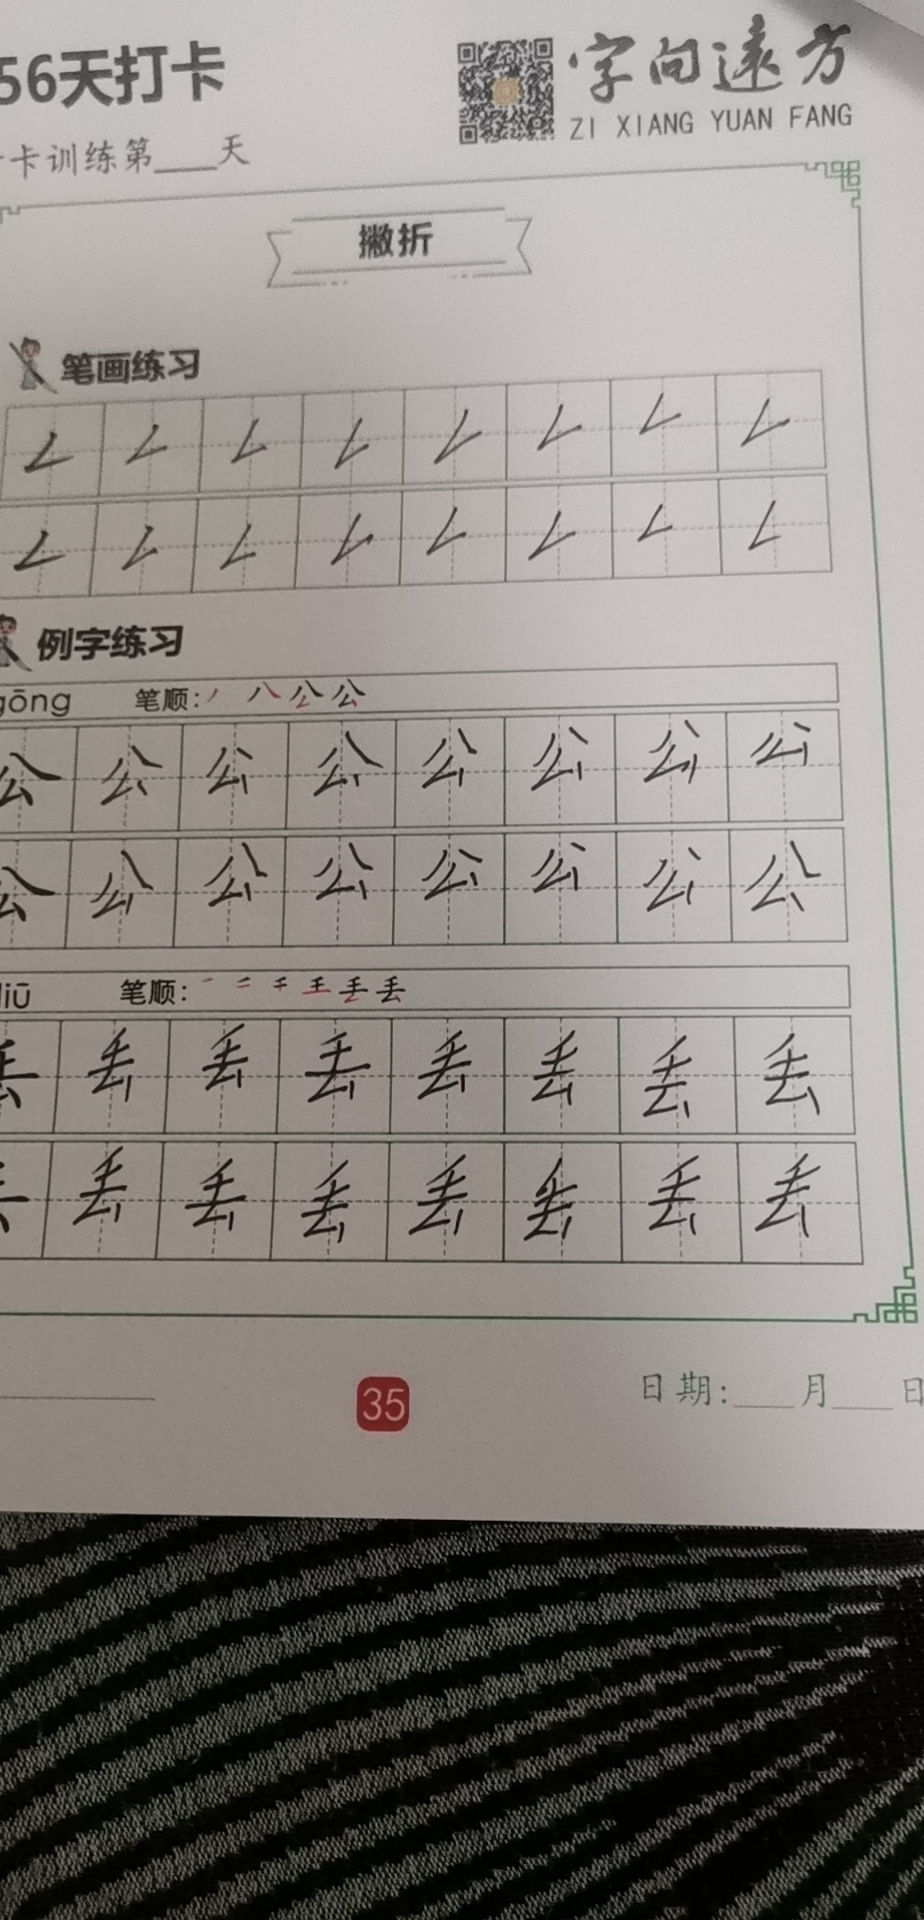 56天打卡
字向遠方
ZI XIANG YUAN FANG
卡训练第____天
撇折
笔画练习
𠃋 𠃋 𠃋 𠃋 𠃋 𠃋 𠃋 𠃋
𠃋 𠃋 𠃋 𠃋 𠃋 𠃋 𠃋 𠃋
例字练习
gōng 笔顺: 丿 八 公 公
公 公 公 公 公 公 公 公
公 公 公 公 公 公 公 公
diū 笔顺: 一 二 千 王 丢 丢
丢 丢 丢 丢 丢 丢 丢 丢
丢 丢 丢 丢 丢 丢 丢
35
日期:____月____日